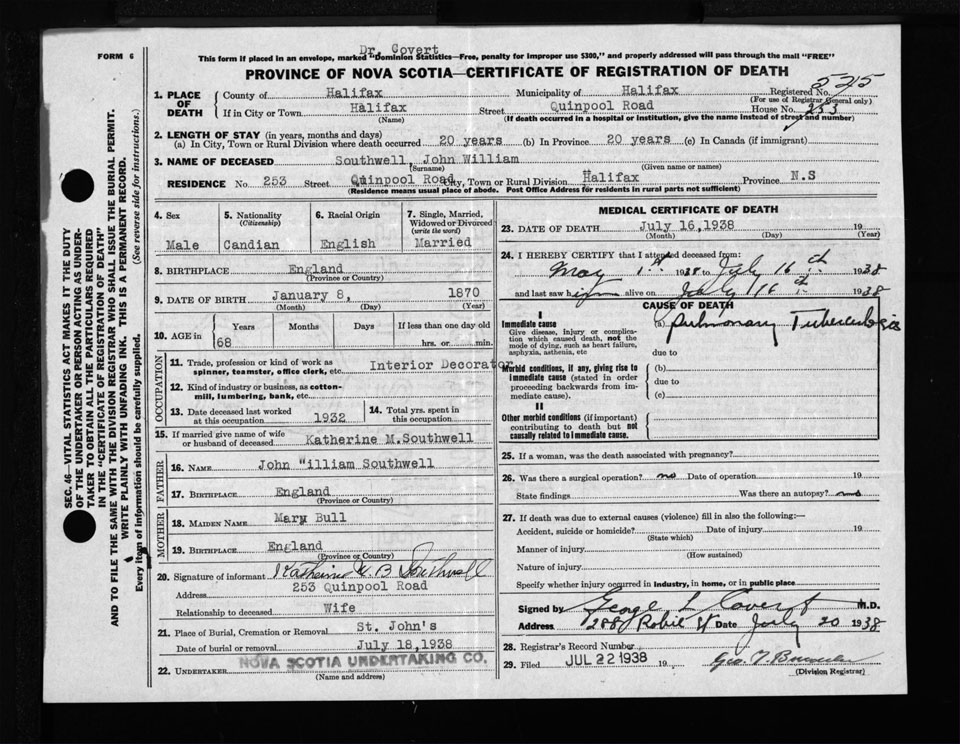 Dr. Covert
FORM 6
This form if placed in an envelope, marked "Dominion Statistics—Free, penalty for improper use $300," and properly addressed will pass through the mail "FREE"
PROVINCE OF NOVA SCOTIA—CERTIFICATE OF REGISTRATION OF DEATH
SEC. 46—VITAL STATISTICS ACT MAKES IT THE DUTY
OF THE UNDERTAKER OR PERSON ACTING AS UNDER-
TAKER TO OBTAIN ALL THE PARTICULARS REQUIRED
IN THE "CERTIFICATE OF REGISTRATION OF DEATH"
AND TO FILE THE SAME WITH THE DIVISION REGISTRAR WHO SHALL ISSUE THE BURIAL PERMIT.
WRITE PLAINLY WITH UNFADING INK. THIS IS A PERMANENT RECORD.
Every item of information should be carefully supplied. (See reverse side for instructions.)
1. PLACE OF DEATH
County of Halifax Municipality of Halifax Registered No. 525
(For use of Registrar General only)
If in City or Town Halifax Street Quinpool Road House No. 253
(Name) (If death occurred in a hospital or institution, give the name instead of street and number)
2. LENGTH OF STAY (in years, months and days)
(a) In City, Town or Rural Division where death occurred 20 years (b) In Province 20 years (c) In Canada (if immigrant)
3. NAME OF DECEASED Southwell, John William
(Surname) (Given name or names)
RESIDENCE No. 253 Street Quinpool Road City, Town or Rural Division Halifax Province N.S
(Residence means usual place of abode. Post Office Address for residents in rural parts not sufficient)
4. Sex 5. Nationality (Citizenship) 6. Racial Origin 7. Single, Married, Widowed or Divorced (write the word)
Male Candian English Married
8. BIRTHPLACE England
(Province or Country)
9. DATE OF BIRTH January 8, 1870
(Month) (Day) (Year)
10. AGE in Years Months Days If less than one day old
68 hrs. or min.
OCCUPATION
11. Trade, profession or kind of work as Interior Decorator
spinner, teamster, office clerk, etc.
12. Kind of industry or business, as cotton-
mill, lumbering, bank, etc.
13. Date deceased last worked at this occupation 1932
14. Total yrs. spent in this occupation
15. If married give name of wife or husband of deceased Katherine M.Southwell
FATHER
16. NAME John "illiam Southwell
17. BIRTHPLACE England
(Province or Country)
MOTHER
18. MAIDEN NAME Mary Bull
19. BIRTHPLACE England
(Province or Country)
20. Signature of informant Katherine M. B Southwell
Address 253 Quinpool Road
Relationship to deceased Wife
21. Place of Burial, Cremation or Removal St. John's
Date of burial or removal July 18,1938
22. UNDERTAKER NOVA SCOTIA UNDERTAKING CO.
(Name and address)
MEDICAL CERTIFICATE OF DEATH
23. DATE OF DEATH July 16,1938 19
(Month) (Day) (Year)
24. I HEREBY CERTIFY that I attended deceased from:
May 1st 1938 to July 16th 1938
and last saw him alive on July 16th 1938
CAUSE OF DEATH
I
Immediate cause (a) Pulmonary Tuberculosis
Give disease, injury or complica-
tion which caused death, not the
mode of dying, such as heart failure,
asphyxia, asthenia, etc
due to
Morbid conditions, if any, giving rise to (b)
immediate cause (stated in order due to
proceeding backwards from im-
mediate cause). (c)
II
Other morbid conditions (if important)
contributing to death but not
causally related to immediate cause.
25. If a woman, was the death associated with pregnancy?
26. Was there a surgical operation? no Date of operation 19
State findings Was there an autopsy? no
27. If death was due to external causes (violence) fill in also the following:—
Accident, suicide or homicide? Date of injury 19
(State which)
Manner of injury
(How sustained)
Nature of injury
Specify whether injury occurred in industry, in home, or in public place
Signed by George L Covert M.D.
Address 288 Robie St Date July 20 1938
28. Registrar's Record Number
29. Filed JUL 22 1938 19
(Division Registrar)